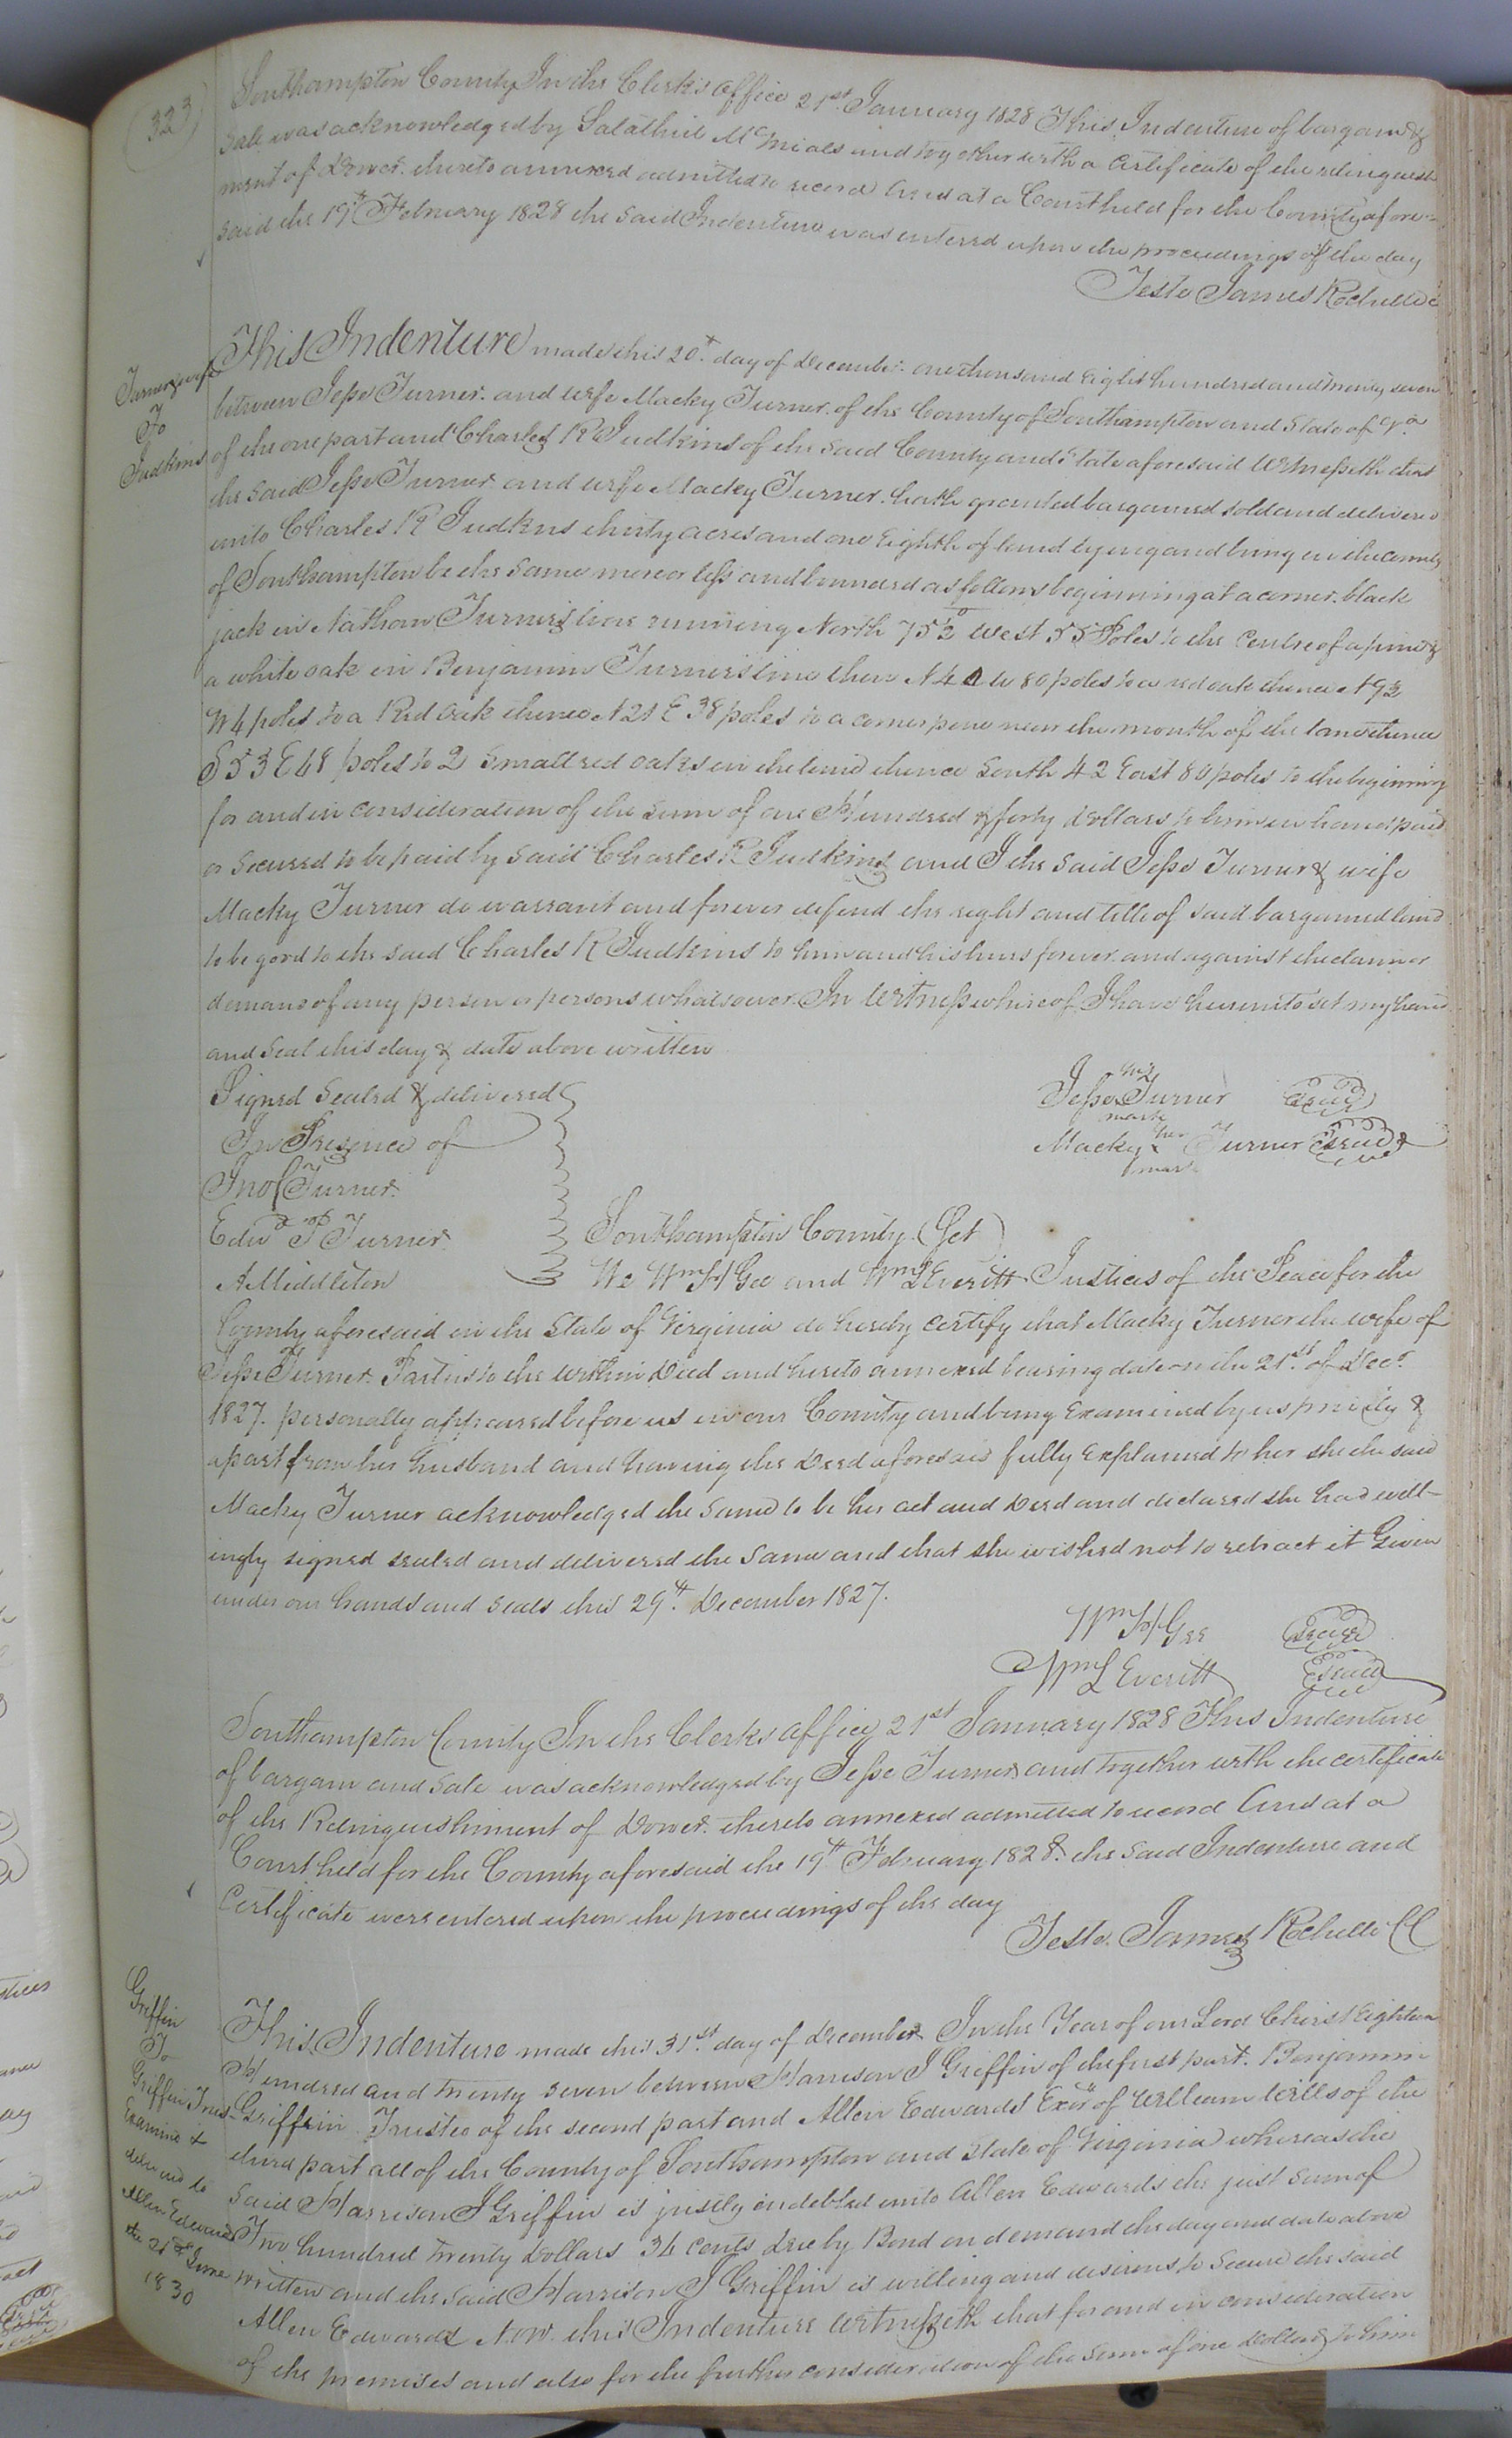 323
Southampton County In the Clerk's office 21st January 1828 This Indenture of bargain &
sale was acknowledged by Salathiel and together with a certificate of the relinquish
ment of Dower thereto annexed admitted to record And at a Court held for the County afore=
said the 19th February 1828 the said Indenture was entered upon the proceedings of the day
Teste James Rochelle C
Turner & wife
To
Judkins
This Indenture made this 20t day of December one thousand eight hundred and twenty seven
between Jesse Turner and wife Macky Turner of the County of Southampton and State of Va
of the one part and Charles R Judkins of the said County and State aforesaid Witnesseth that
the said Jesse Turner and wife Macky Turner hath granted bargained sold and delivered
unto Charles R Judkins thirty acres and one Eighth of land lying and being in the county
of Southampton be the same more or less and bounded as follows beginning at a corner black
jack in Nathan Turner's line running North 75½ West 55 Poles to the Centre of a pine &
a white oak in Benjamin Turner's line then N 4 W 80 poles to a red oak thence N 9½
W 4 poles to a Red Oak thence N 21 E 38 poles to a corner pine near the mouth of the lane thence
S 53 E 48 poles to 2 small red oaks in the line thence South 42 East 80 poles to the beginning
for and in consideration of the sum of one Hundred & forty dollars to him in hand paid
or secured to be paid by said Charles R Judkins and I the said Jesse Turner & wife
Macky Turner do warrant and forever defend the right and title of said bargained land
to be good to the said Charles R Judkins to him and his heirs forever and against the claim or
demand of any person or persons whatsoever In Witness whereof I have hereunto set my hand
and seal this day & date above written
Signed Sealed & delivered
In Presence of
Jno Turner
Edwd P Turner
A Middleton
Jesse Turner Seal
mark
Macky her Turner Seal
mark
Southampton County (Sct
We Wm H Gee and Wm L Everitt Justices of the Peace for the
County aforesaid in the State of Virginia do hereby certify that Macky Turner the wife of
Jesse Turner Parties to the within Deed and hereto annexed bearing date on the 21st of Decr
1827. personally appeared before us in our County and being Examined by us privily &
apart from her husband and having the Deed aforesaid fully Explained to her she the said
Macky Turner acknowledged the same to be her act and Deed and declared she had will-
ingly signed sealed and delivered the same and that she wished not to retract it Given
under our hands and seals this 29th December 1827.
Wm H Gee Seal
Wm L Everitt Seal
Southampton County In the Clerks office 21st January 1828 This Indenture
of bargain and sale was acknowledged by Jesse Turner and together with the certificate
of the Relinquishment of Dower thereto annexed admitted to record And at a
Court held for the County aforesaid the 19th February 1828. the said Indenture and
Certificate were entered upon the proceedings of the day
Teste. James Rochelle CC
Griffin
To
Griffin Trus-
Examined &
delivered to
Allen Edwards
the 21st June
1830
This Indenture made this 31st day of December In the Year of our Lord Christ Eighteen
Hundred and twenty seven between Harrison J Griffin of the first part. Benjamin
Griffin Trustee of the second part and Allen Edwards Exor of William Wills of the
third part all of the County of Southampton and State of Virginia whereas the
said Harrison J Griffin is justly indebted unto Allen Edwards the just sum of
Two hundred twenty Dollars 34 cents due by Bond on demand the day and date above
written and the said Harrison J Griffin is willing and desirous to Secure the said
Allen Edwards Now this Indenture Witnesseth that for and in consideration
of the premises and also for the further consideration of the sum of one Dollar to him